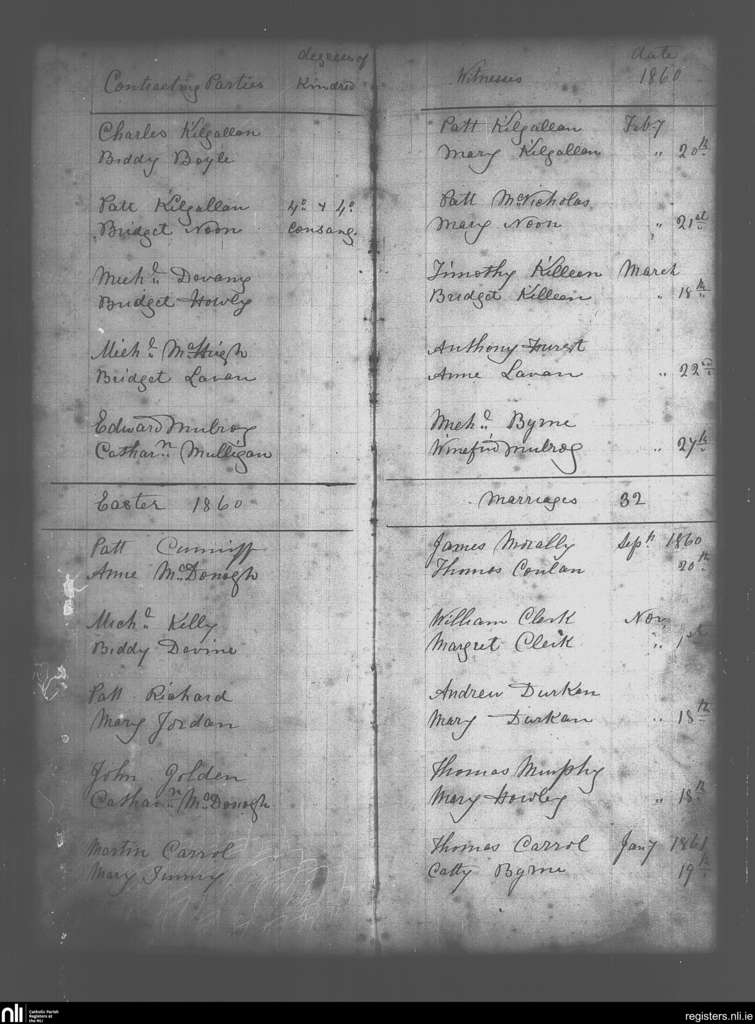 degrees of date
Contracting Parties Kindred Witnesses 1860
Charles Kilgallan Patt Kilgallan Feby
Biddy Boyle Mary Kilgallan " 20th
Patt Kilgallan 4o & 4o Patt McNicholas
Bridget Noon Consang. Mary Noon " 21st
Michl. Devany Timothy Killeen March
Bridget Howly Bridget Killeen " 18th
Michl. McHugh Anthony
Bridget Lavan Anne Lavan " 22nd
Edward Mulroy Michl. Byrne
Catharn. Mulligan Winefrid Mulroy " 27th
Easter 1860 Marriages 32
Patt Cunniff James Morally Septr 1860
Anne McDonogh Thomas Conlan 20th
Michl. Kelly William Clerk Nov.
Biddy Devine Margret Clerk " 1st
Patt Richard Andrew Durkan
Mary Jordan Mary Durkan " 18th
John Golden Thomas Murphy
Catharn. McDonogh Mary Howley " 18th
Martin Carrol Thomas Carrol Jany 1861
Mary Catty Byrne 19th
nli Catholic Parish
Registers at
the NLI
registers.nli.ie